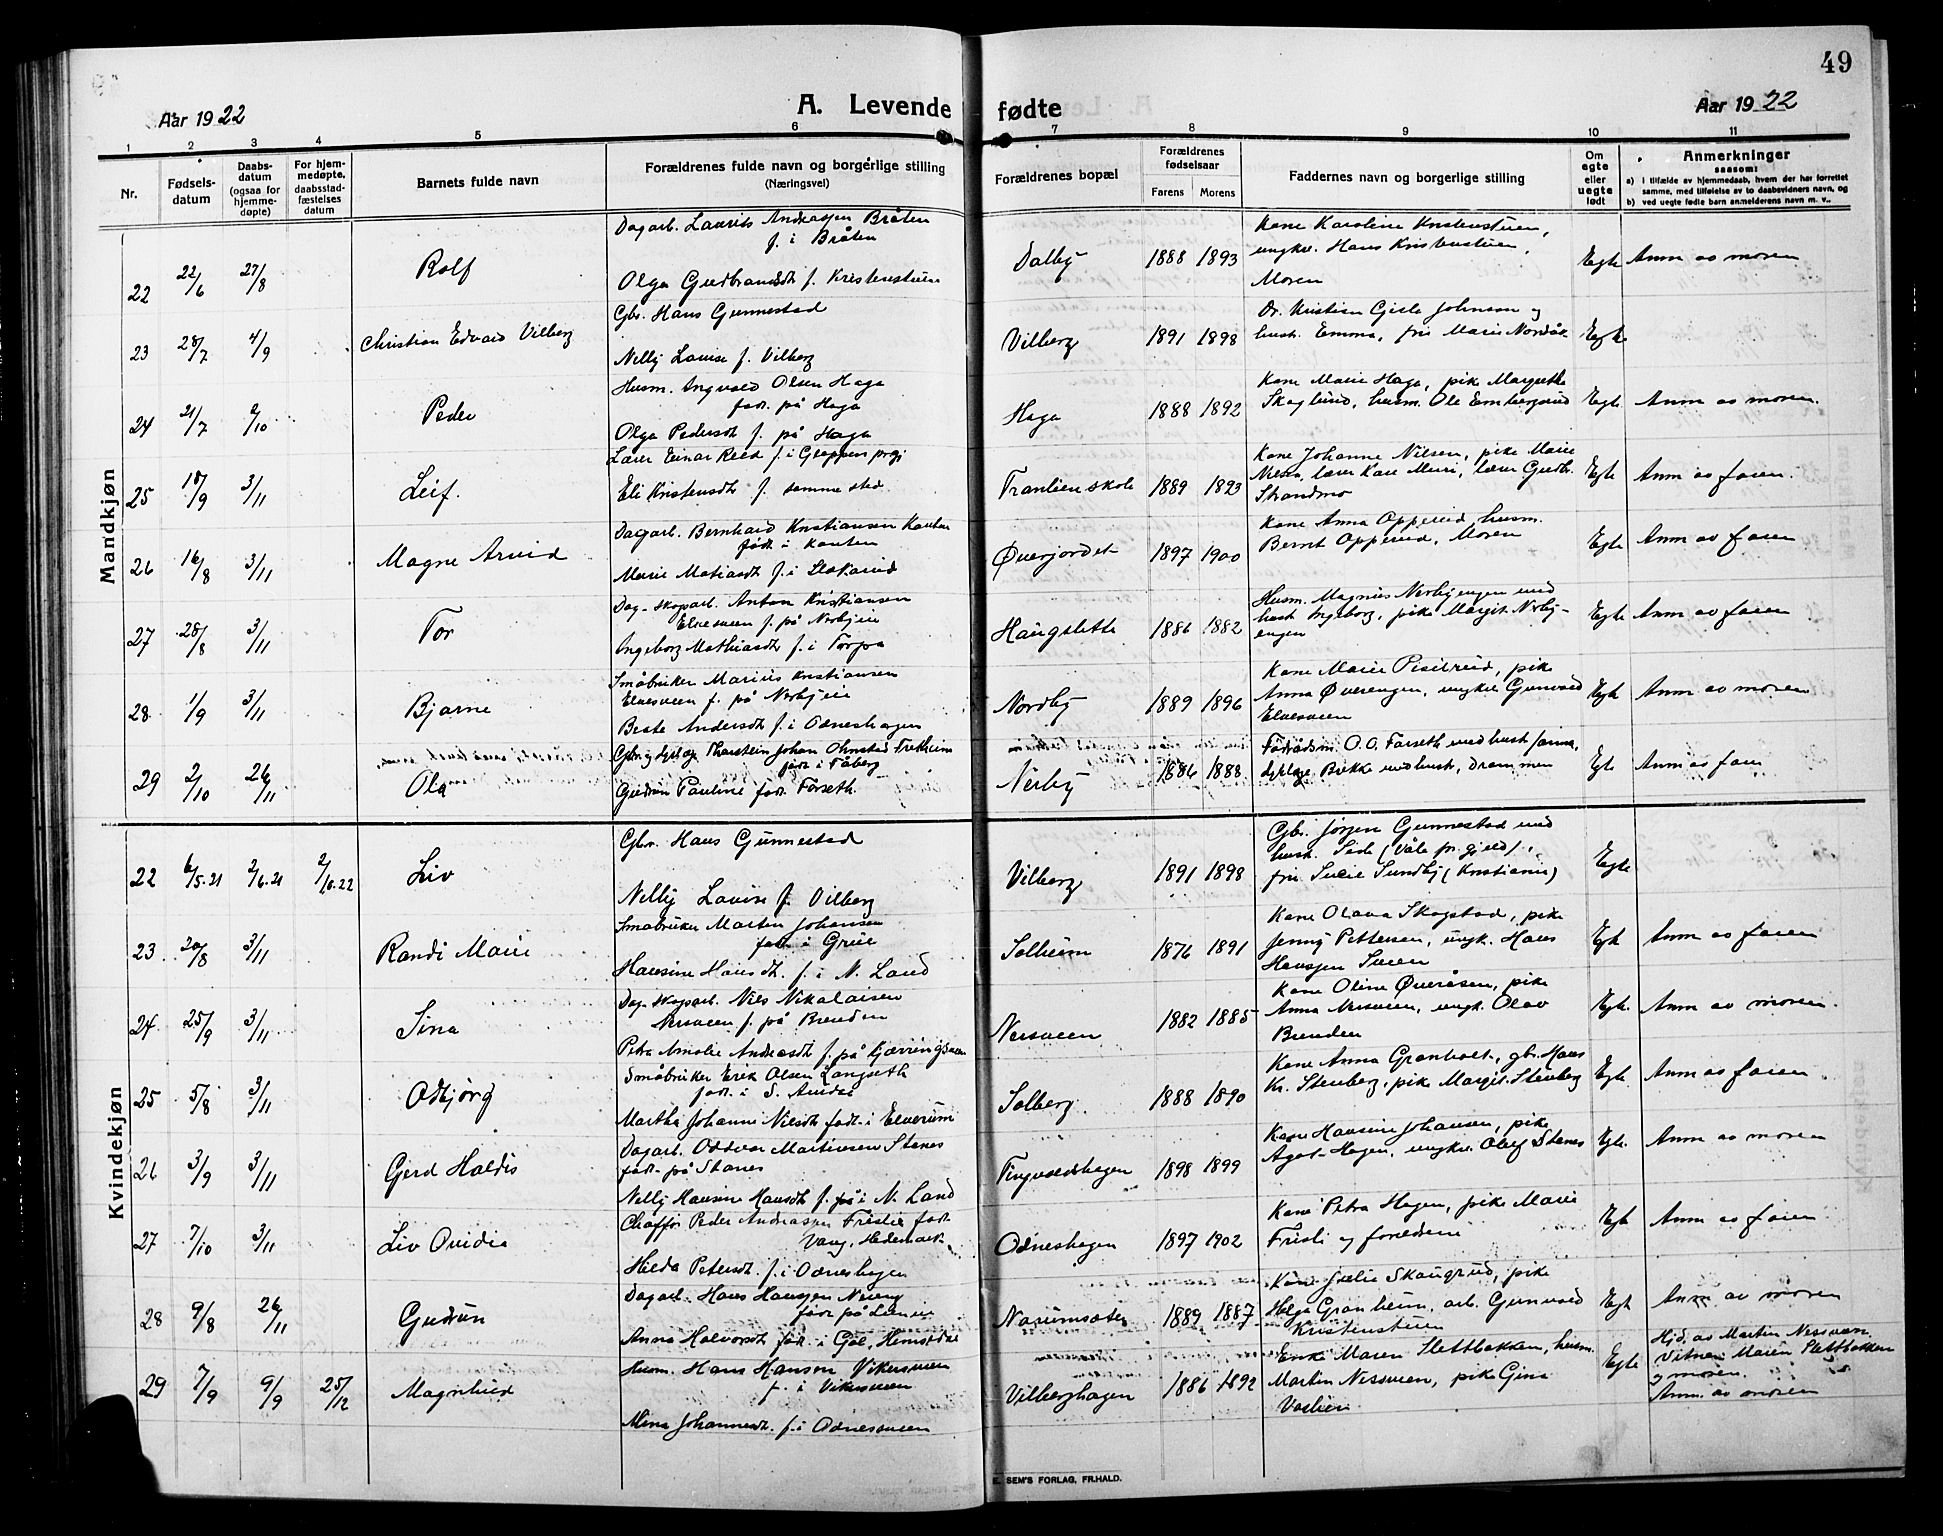 49
Aar 1922
A. Levende fødte
Aar 1922
1 2 3 4 5 6 7 8 9 10 11
Nr.
Fødsels-
datum
Daabs-
datum
(ogsaa for
hjemme-
døpte)
For hjem-
medøpte,
daabsstad-
fæstelses
datum
Barnets fulde navn
Forældrenes fulde navn og borgerlige stilling
(Næringsvei)
Forældrenes bopæl
Forældrenes
fødselsaar
Farens Morens
Faddernes navn og borgerlige stilling
Om
egte
eller
uegte
født
Anmerkninger
saasom:
a) i tilfælde av hjemmedaab, hvem der har forrettet
samme, med tilføielse av to daabsvidners navn, og
b) ved uegte fødte barn anmelderens navn m. v..
Mandkjøn
22 22/6 27/8 Rolf
Dagarb. Laurits Andreassen Bråten
f. i Bråten
Olga Gudbrandsdt f. Kristenstuen
Dalby 1888 1893
Kone Karoline Kristenstuen,
ungkr. Hans Kristenstuen,
Moren
Egte Anm av moren
23 28/7 4/9 Christian Edvard Vilberg
Gbr. Hans Gunnestad
Nelly Louise f. Vilberg
Vilberg 1891 1898
Dr. Kristian Gisle Johnson og
hust. Emma, frk Marie Nordåk
Egte
24 21/7 /10 Peder
Husm. Ingvald Olsen Haga
født. på Haga
Olga Pedersdt f. på Haga
Haga 1888 1892
Kone Marie Haga, pike Margrethe
Skaglund, husm. Ole Embergsrud
Egte Anm av moren.
25 18/9 3/11 Leif.
Lærer Einar Reed f. i Gloppen prgj
Eli Kristensdt f. samme sted
Tranlien skole 1889 1893
Kone Johanne Nilsen, pike Marie
lærer Kåre lærer Gudb.
Strandmo
Egte Anm av faren.
26 16/8 3/11 Magne Arvid
Dagarb. Bernhard Kristiansen Kanten
født i Kanten
Marie Matiasdt f. i
Øverjordet 1897 1900
Kone Anna Opperud, husm.
Bernt Opperud, Moren
Egte Anm av faren
27 28/8 3/11 Tor
Dag- skogarb. Anton Kristiansen
Elvesveen f. på Nerbyeie
Ingeborg Mathiasdt f. i Torpa
Haugslette 1886 1882
Husm. Magnus Nerbyengen med
hust Ingeborg, pike Margit Nerby-
engen
Egte Anm av faren
28 1/9 3/11 Bjarne
Småbruker Marius Kristiansen
Elvesveen f. på Nerbyeie
Beate Andersdt f. i Odneshagen
Nordby 1889 1896
Kone Marie Piselrud, pike
Anna Øverengen, ungkr Gunvald
Elvesveen
Egte Anm av moren
29 2/10 26/11 Ola
Gbr. og dyrlæge Thorstein Johan Ohnstad Fretheim
født i Fåberg
Gudrun Pauline født Forseth
Nerby 1886 1888
Föderådsm. O. O. Forseth med hust
dyrlæge Bakke med hust, Drammen
Egte Anm av faren
Kvindekjøn
22 6/5.21 2/6.21 2/10.22 Liv
Gbr. Hans Gunnestad
Nelly Louise f. Vilberg
Vilberg 1891 1898
Gbr. Jørgen Gunnestad med
hust. (Våle pr.gjeld),
frk Sundby (Kristiania)
Egte
23 20/8 3/11 Randi Marie
Småbruker Martin Johansen
født i Grue
Hansine Hansdt. f. i N. Land
Solheim 1876 1891
Kone Olava Skogstad, pike
Jenny Pettersen, ungk. Hans
Hansen
Egte Anm av faren
24 25/9 3/11 Sina
Dag- skogarb. Nils Nikolaisen
Nersveen f. på Brenden
Petra Amalie Andreasdt f. på Kjerringsveen
Nersveen 1882 1885
Kone Oline Øveråsen, pike
Anna Nersveen, ungk. Olav
Brenden
Egte. Anm av moren.
25 5/8 3/11 Odbjørg
Småbruker Erik Olsen Langseth
født i S. Aurdal
Martha Johanne Nilsdt født i Elverum
Solberg 1888 1890
Kone Anna Granholt, gbr. Hans
Kr. Stenberg, pike Margit Stenberg
Egte. Anm av faren
26 3/9 3/11 Gjerd Haldis
Dagarb. Oddvar Martinsen Stenes
født på Stenes
Nelly Hansine Hansdt f. på i N. Land
Tingvoldshagen 1898 1899
Kone Hansine Johansen, pike
Agot Hagen, ungkr. Olaf Stenes
Egte. Anm av moren
27 7/10 3/11 Liv Ovidie
Chaffør Peder Andreassen Fristie født
Vang, Hedemark
Hilda Petersdt. f. i Odneshagen
Odneshagen 1897 1902
Kone Petra Hagen, pike Marie
Fristi og foreldrene
Egte Anm av faren
28 9/8 26/11 Gudrun
Dagarb. Hans Hansen
født på
Anna Halvorsdt født i Gol, Hemsedal
1889 1887
Kone Julie Skaugrud, pike
Helga Granheim, arb. Gunvald
Kristenstuen
Egte Anm av moren
29 7/9 9/9 25/12 Magnhild
Husm. Hans Hansen Vikersveen
f. i Vikersveen
Mina Johannesdt. f. i Odnesveen
Vilberghagen 1886 1892
Enke Maren Slettbakken, husm.
Martin Nessveen, pike Gina
Vaslien
Egte
Hjd. av Martin Nessveen
Vitner Maren Slettbakken
og moren.
Anm. av moren
E. SEM'S FORLAG, FR.HALD.